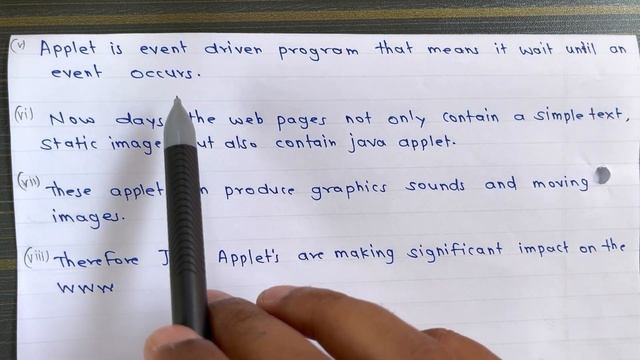 (v) Applet is event driven program that means it wait until an
event occurs.
(vi) Now days the web pages not only contain a simple text,
static image but also contain java applet.
(vii) These applet produce graphics sounds and moving
images.
(viii) Therefore Applet's are making significant impact on the
WWW